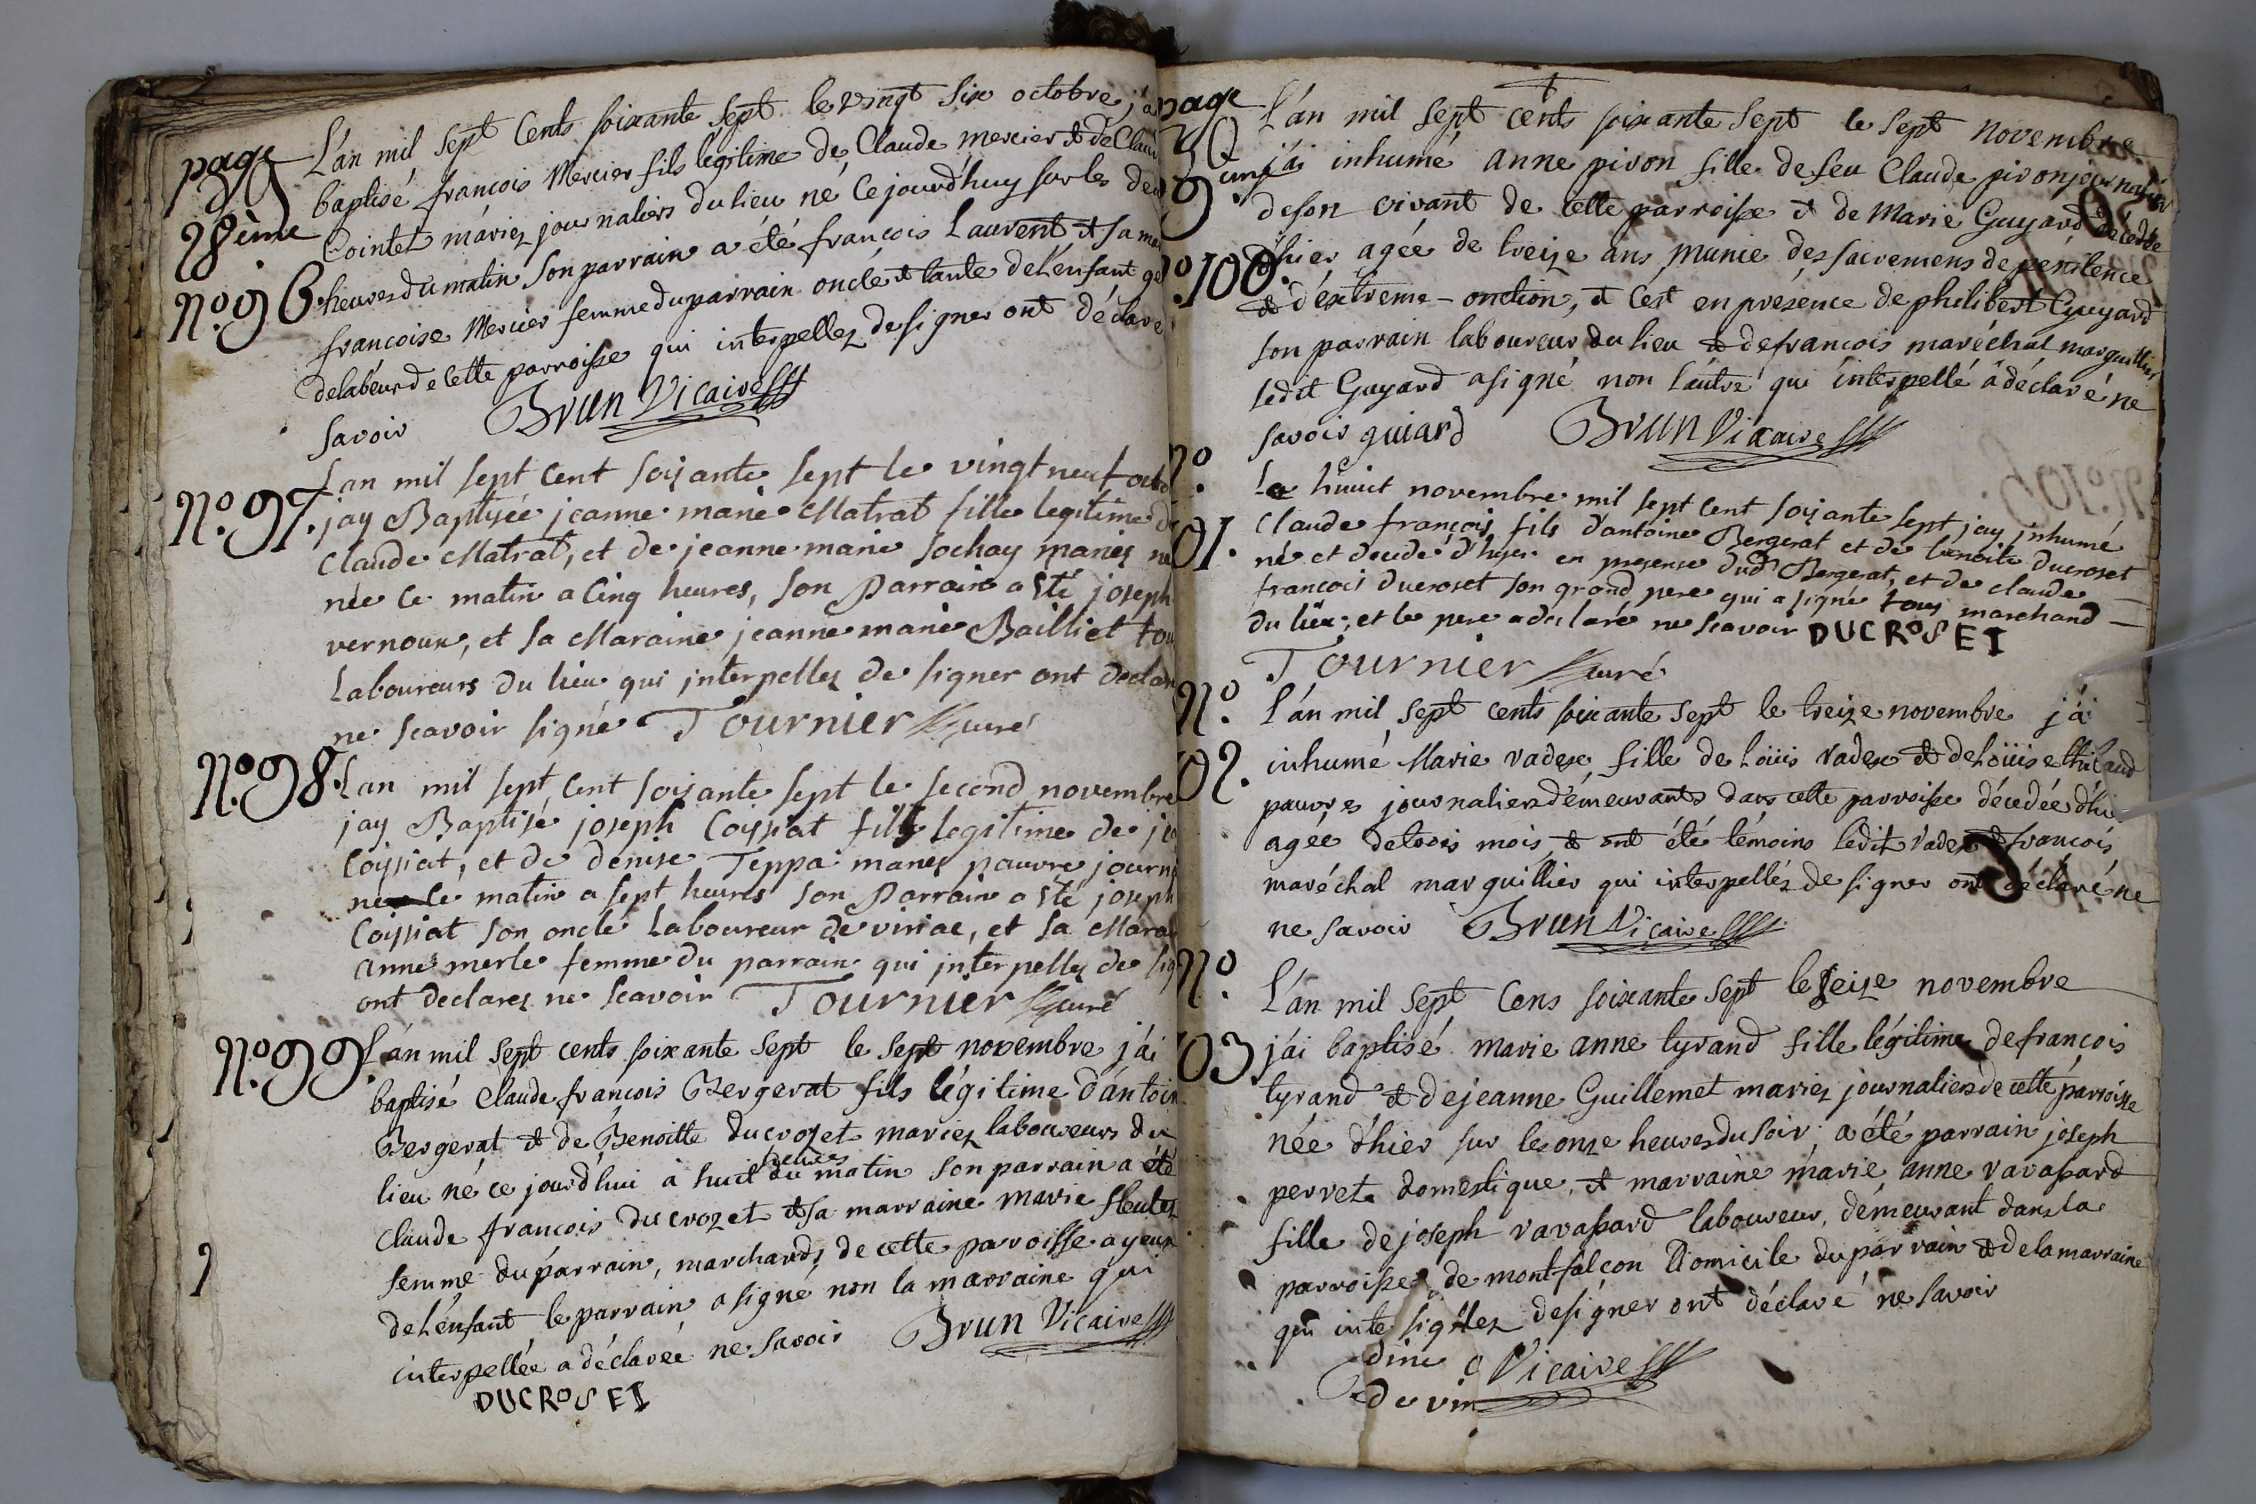 page
28ème
N.º 96.
L'an mil sept Cents soixante sept le vingt six octobre j'a
baptisé françois Mercier fils légitime de Claude mercier & de Clau
Cointet mariez journaliers du lieu né Ce jourd'huy sur les de
heures du matin son parrain a été françois Laurent & sa ma
françoise Mercier femme du parrain oncle & tante de l'enfant ge
de labeur de Cette parroisse qui interpellez de signer ont déclaré
savoir Brun Vicaire
N.º 97.
Lan mil sept Cent soixante sept le vingt neuf octo
jay Baptisée jeanne marie Matrat fille legitime d
Claude Matrat, et de jeanne marie Sochay mariez
née Ce matin a Cinq heures, son Parrain a Eté joseph
vernoux, et sa Maraine jeanne marie Bailliet tou
Laboureurs du lieu qui interpellez de signer ont declar
ne scavoir signé Tournier Curé
N.º 98.
Lan mil sept Cent soixante sept le second novembre
jay Baptisé joseph Coissiat fils legitime de je
Coissiat, et de denise Teppa mariez pauvre journ
ne Ce matin a sept heures son Parrain a Eté joseph
Coissiat son oncle Laboureur de viriac, et sa Mara
anne merle femme du parrain qui interpellez de sig
ont declarez ne scavoir Tournier Curé
N.º 99.
L'an mil sept cents soixante sept le sept novembre j'ai
baptisé Claude françois Bergerat fils légitime d'antoin
Bergerat & de Benoitte ducrozet mariez laboureurs du
lieu né ce jourd'hui à huit heures du matin son parrain a été
Claude françois ducrozet & sa marraine marie
femme du parrain, marchands de cette paroisse ayeux
de l'enfant le parrain a signé non la marraine qui
interpellée a déclarée ne savoir Brun Vicaire
DUCROSEt
page
L'an mil sept cents soixante sept le sept novembre
j'ai inhumé anne piron fille de feu Claude piron journalier
de son vivant de cette parroisse & de Marie Guyard décédée
N.º 100.
d'hier agée de treize ans munie des sacremens de pénitence
& d'extreme-onction, & c'est en présence de philibert Guyard
son parrain laboureur du lieu & de francois maréchal marguillier
ledit Guyard a signé non l'autre qui interpellé a déclaré ne
savoir guiard Brun Vicaire
N.º
01.
Le huict novembre mil sept Cent soixante sept jay inhumé
Claude françois, fils d'antoine Bergerat et de benoite ducroset
né et decedé d'hyer en presence dud Bergerat, et de claude
francois ducroset son grand pere qui a signé tous marchand
du lieu; et le pere a declaré ne scavoir DUCROSEt
Tournier Curé
N.º
02.
L'an mil sept cents soixante sept le treize novembre j'ai
inhumé Marie vadex fille de Loüis vadex & de Loüise thibaud
pauvres journaliers démeurants dans cette parroisse décédée d'hier
agée de trois mois & ont été témoins ledit vadex & francois
maréchal marguillier qui interpellés de signer ont déclaré ne
ne savoir Brun Vicaire
N.º
03.
L'an mil sept Cens soixante sept le seize novembre
j'ai baptisé marie anne tyrand fille légitime de françois
tyrand & de jeanne Guillemet mariez journaliers de cette parroisse
née d'hier sur les onze heures du soir, a été parrain joseph
perret domestique, & marraine marie anne ravassard
fille de joseph ravassard laboureur, démeurant dans la
parroisse de montfalcon Domicile du parrain & de la marraine
qui inte de signer ont déclaré ne savoir
Vicaire